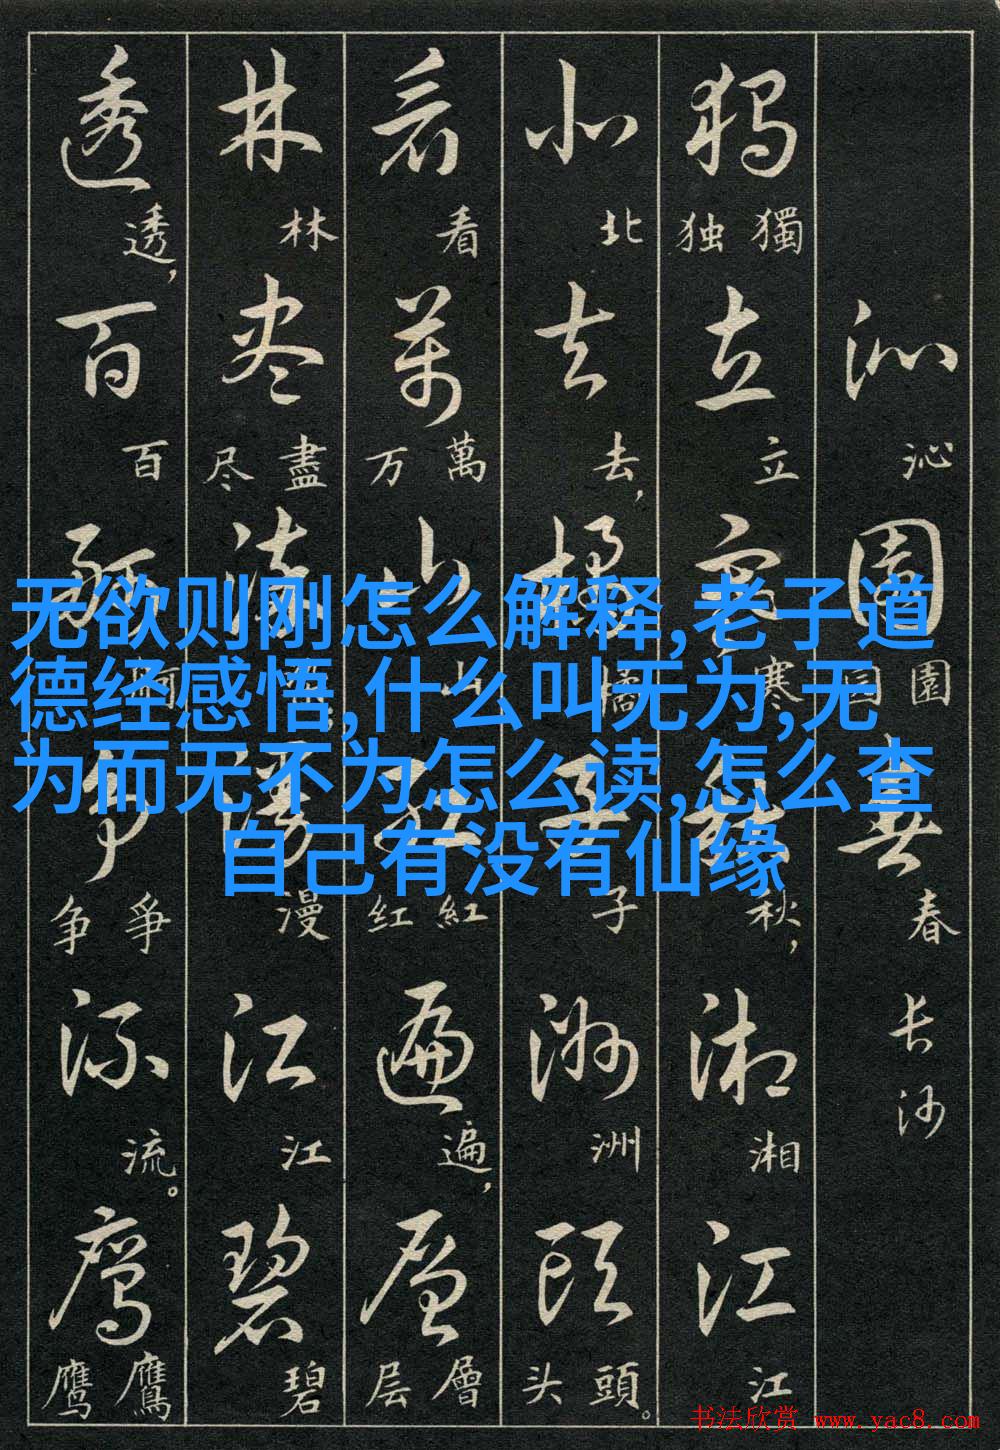 无欲则刚怎么解释,老子道
德经感悟,什么叫无为,无
为而无不为怎么读,怎么查
自己有没有仙缘
沁园春
沁園园春长沙
独立寒秋湘江
獨独立寒秋,湘江
北去橘子洲头
北去,橘子洲頭头。
看万山红遍层
看萬万山紅红遍,層层
林尽染漫江碧
林盡尽漫江碧
透百舸争流鹰
透,百舸爭争流。鷹鹰
书法欣赏 www.yac8.com